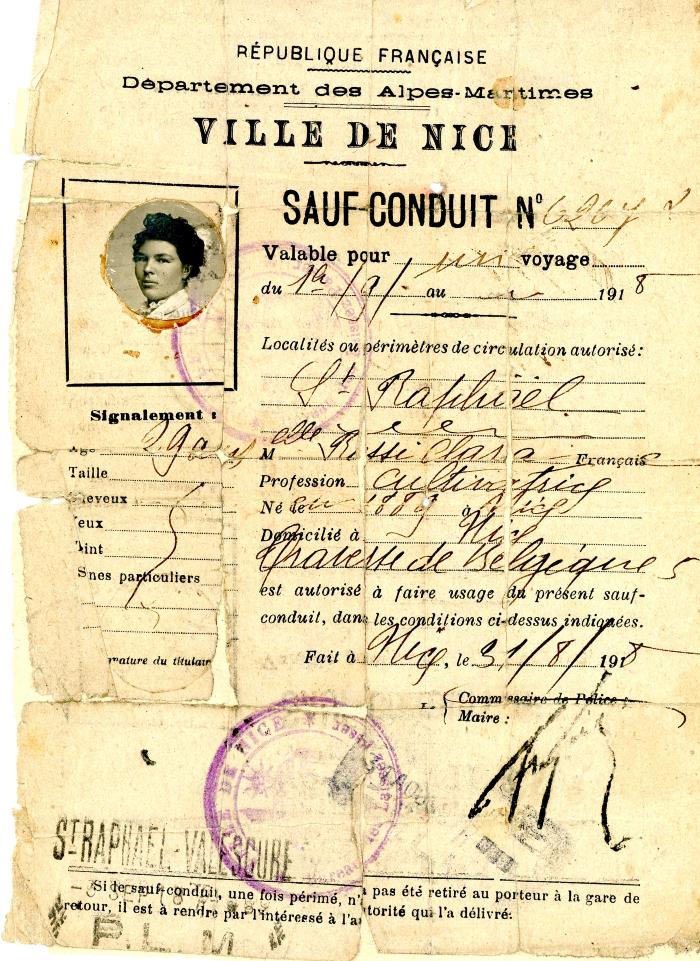 RÉPUBLIQUE FRANÇAISE
Département des Alpes-Maritimes
VILLE DE NICE
SAUF-CONDUIT N° 6267
Valable pour un voyage
du 1er/9/ au 1918
Localités ou périmètres de circulation autorisé:
St Raphaël
Signalement :
Age 29 ans
Taille
Cheveux
Yeux
Teint
Signes particuliers
Signature du titulaire
Melle Rossi Clara Français
Profession Cultivatrice
Né le en 1889 à Nice
Domicilié à Nice
Traverse de Belgique 5
est autorisé à faire usage du présent sauf-
conduit, dans les conditions ci-dessus indiquées.
Fait à Nice, le 31/8/1918
Le Commissaire de Police :
Maire :
DE NICE
AOU
ST RAPHAEL-VALESCURE
Si le sauf-conduit, une fois périmé, n'a pas été retiré au porteur à la gare de
retour, il est à rendre par l'intéressé à l'autorité qui l'a délivré:
P.L.M